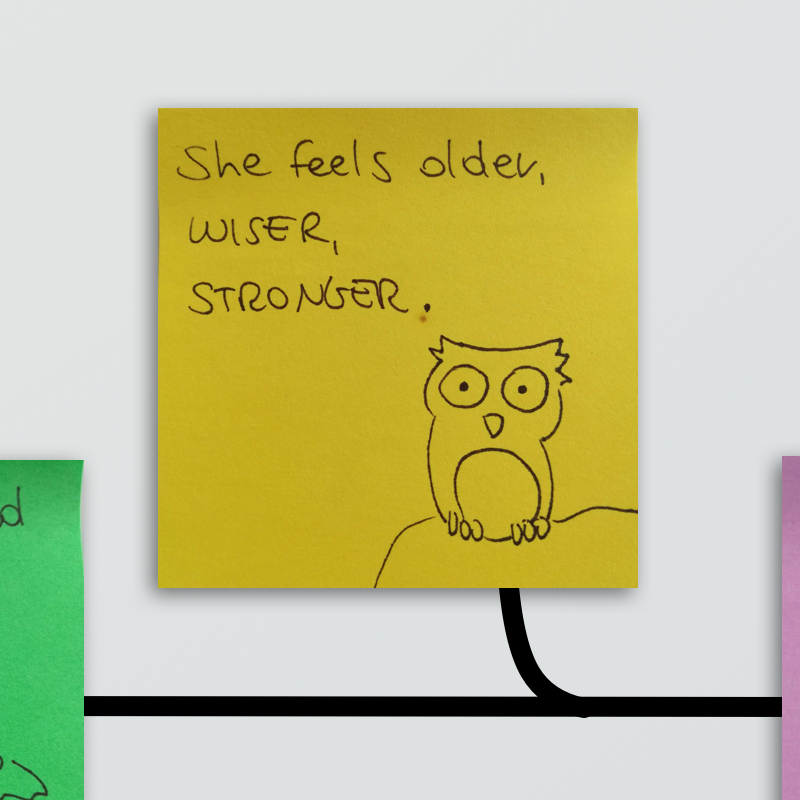 She feels older,
WISER,
STRONGER.